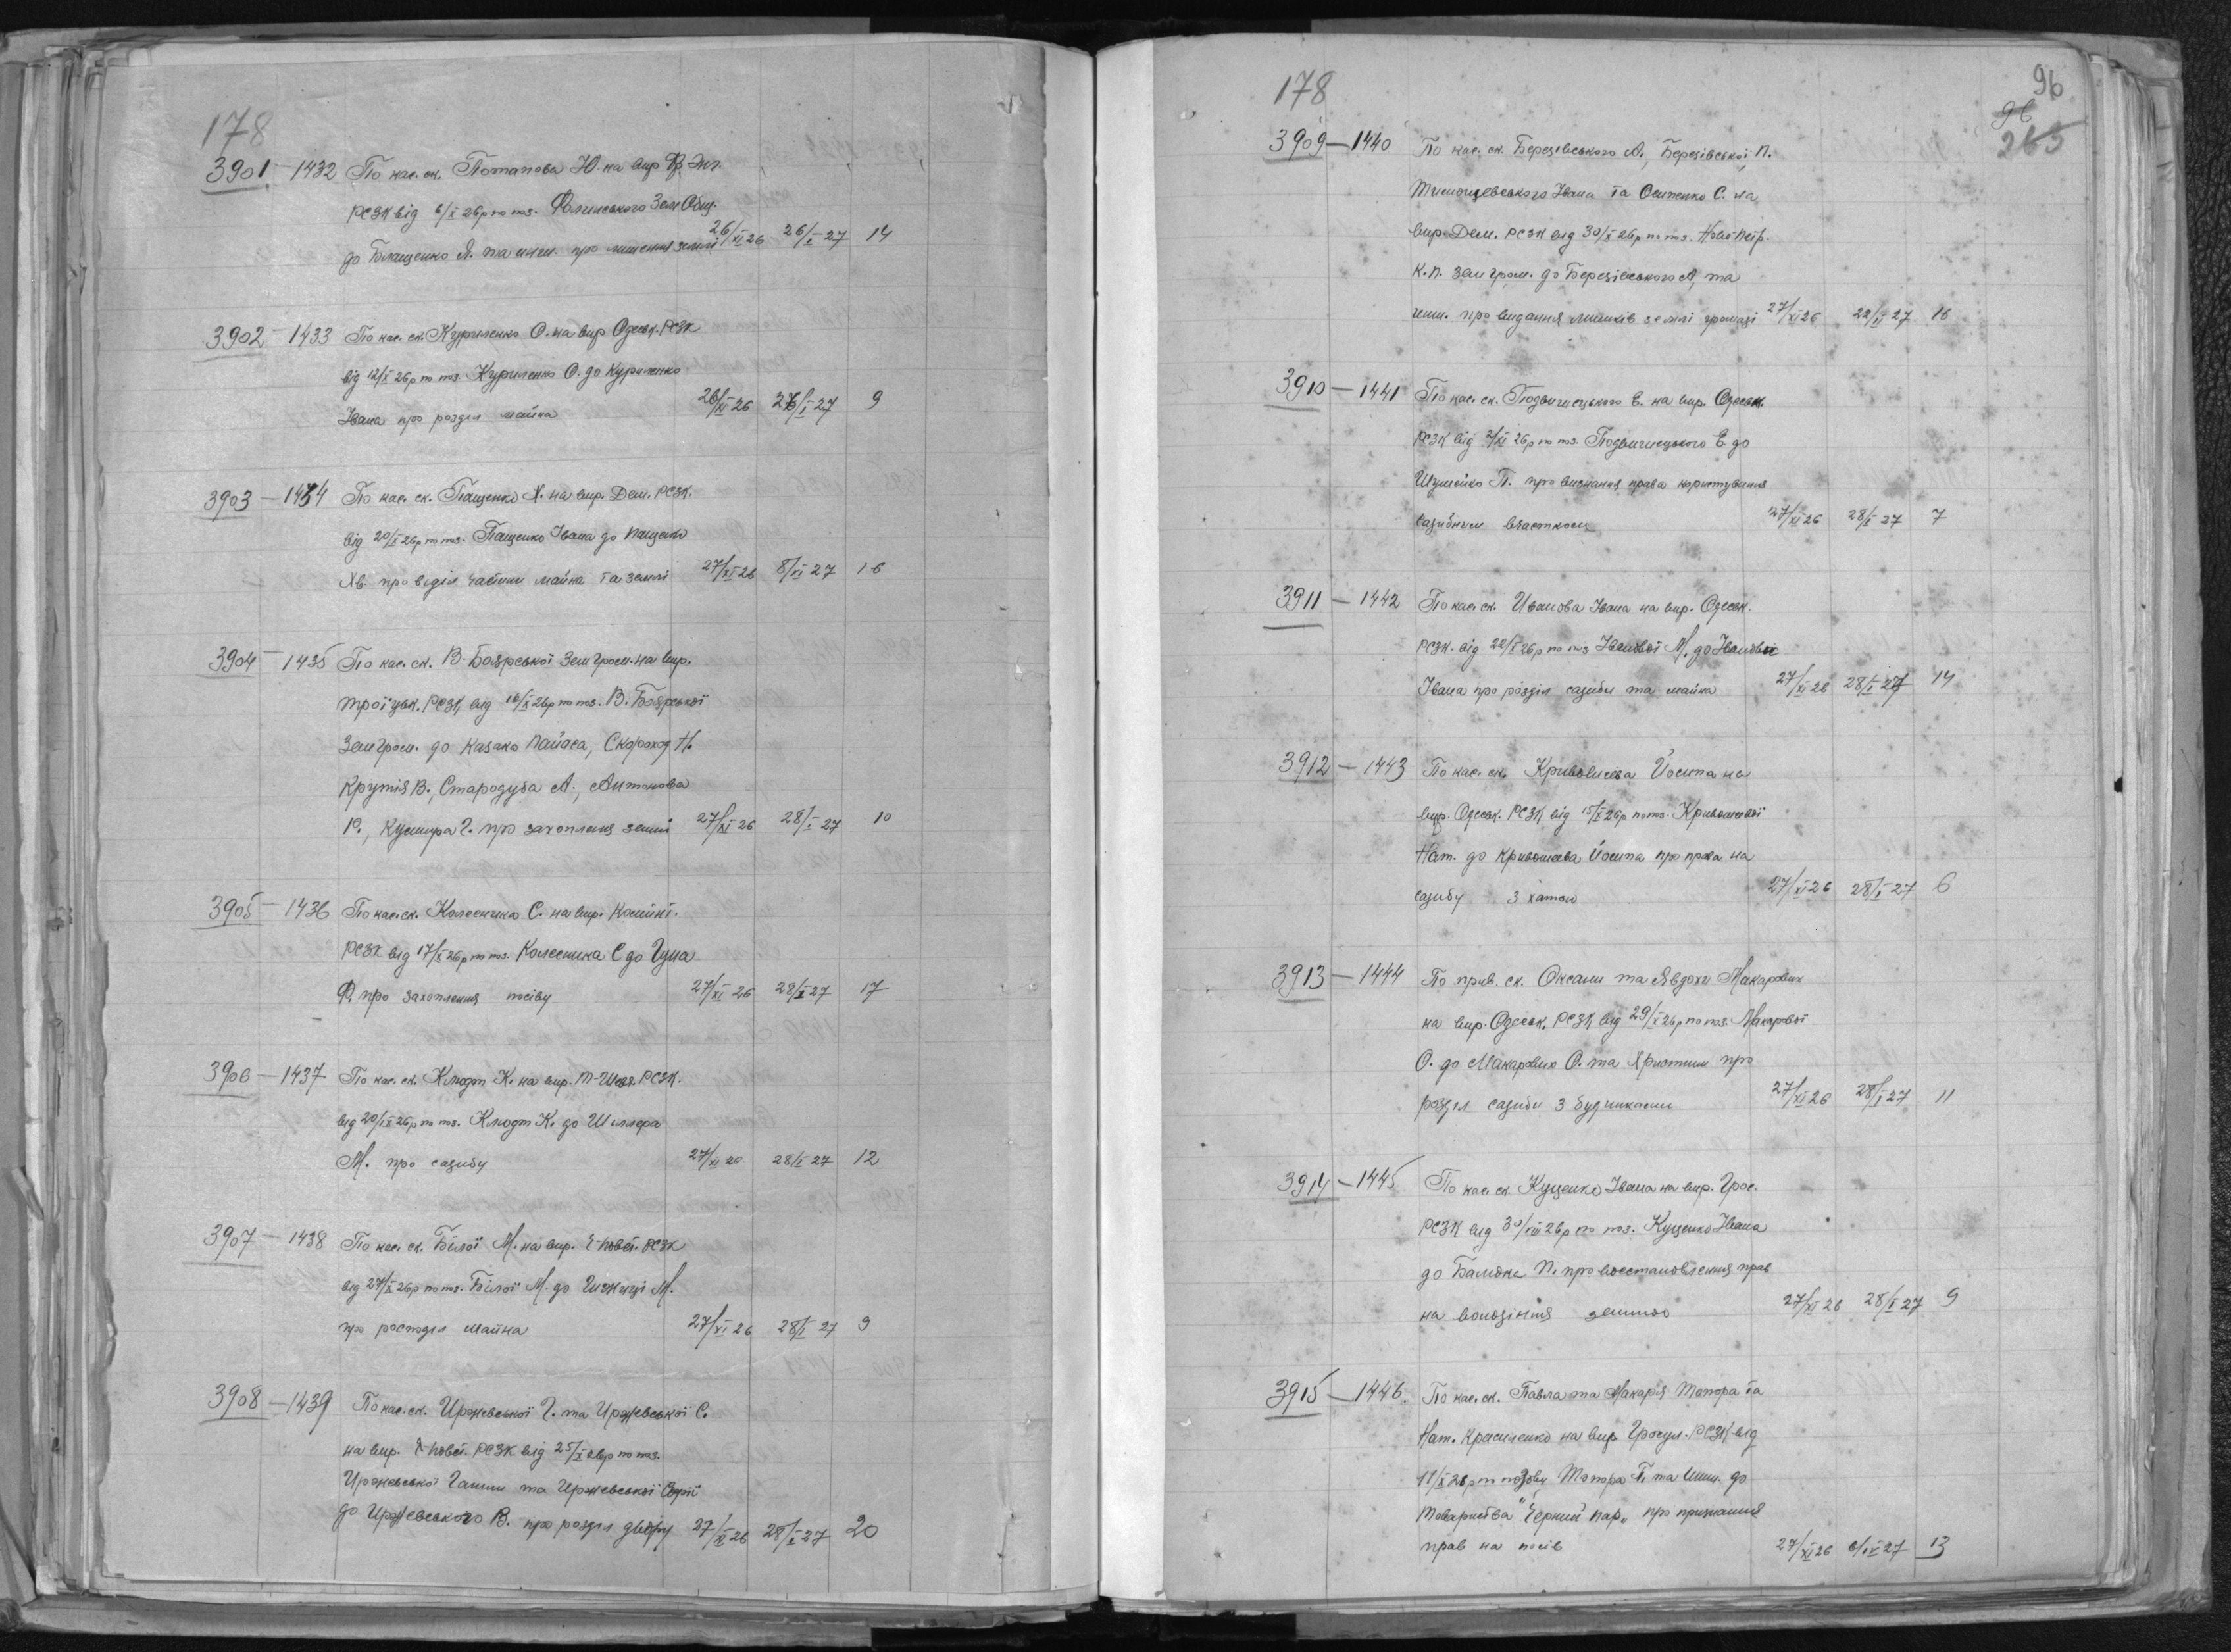 178
3901 — 1432 По кас. ск. Потапова Ю. на вир Фр. Энг.
РСЗК від 6/X 26р по поз. Зем Общ.
до Блащенко Я. та инш. про лишення землі 26/XI 26 26/I 27 14
3902 — 1433 По кас. ск. Куриленко О. на вир Одеськ. РСЗК
від 12/X 26р по поз. Куриленко О. до Куриленко
Івана про розділ майна 26/XI 26 26/I 27 9
3903 — 1434 По кас. ск. Пащенко Х. на вир. Дем. РСЗК.
від 20/X 26р по поз. Пащенко Івана до Пащенко
Хв. про виділ частини майна та землі 27/XI 26 8/VI 27 16
3904 — 1435 По кас. ск. В-Боярської Зем Гром. на вир.
Троїцьк. РСЗК від 16/X 26р по поз. В. Боярської
Земгром. до Казака Панаса, Скороход Н.
Крутія В., Стародуба А., Антонова
Р., Кушнира Г. про захоплення землі 27/XI 26 28/I 27 10
3905 — 1436 По кас. ск. Колесника С. на вир. Комінт.
РСЗК від 17/X 26р по поз. Колесника С до Гуца
Ф. про захоплення посіву 27/XI 26 28/I 27 17
3906 — 1437 По кас. ск. Клюдт К. на вир. Т-Шевч. РСЗК.
від 20/IX 26р по поз. Клюдт К. до Шиллера
М. про садибу 27/XI 26 28/I 27 12
3907 — 1438 По кас. ск. Білої М. на вир. РСЗК
від 27/X 26р по поз. Білої М. до Чижиці М.
про росподіл майна 27/XI 26 28/I 27 9
3908 — 1439 По кас. ск. Иржевської Г. та Иржевської С.
на вир. РСЗК від 25/X 26р по поз.
Иржевської Ганни та Иржевської Софії
до Иржевського В. про розділ двору 27/XI 26 28/I 27 20
178
96
96
265
3909 — 1440 По кас. ск. Березівського А., Березівської П.
Івана та Осипенко С. на
вир. Дем. РСЗК від 30/X 26р по поз. Ново Петр.
К.п. Зем гром. до Березівського А, та
инш. про видання лишків землі громаді 27/XI 26 22/II 27 16
3910 — 1441 По кас. ск. Подвисоцького Е. на вир. Одеськ.
РСЗК від 2/XI 26р по поз. Подвисоцького Е. до
Шумейко П. про визнання права користування
садибним вчастком 27/XI 26 28/I 27 7
3911 — 1442 По кас. ск. Иванова Івана на вир. Одеськ.
РСЗК. від 22/X 26р по поз Іванової М. до Іванова
Івана про розділ садиби та майна 27/XI 26 28/I 27 14
3912 — 1443 По кас. ск. Кривошеєва Йосипа на
вир. Одеськ. РСЗК від 15/X 26р по поз. Кривошеєвої
Нат. до Кривошеєва Йосипа про права на
садибу з хатою 27/XI 26 28/I 27 6
3913 — 1444 По прив. ск. Оксани та Явдохи Макарових
на вир. Одеськ. РСЗК від 29/X 26р по поз. Макарової
О. до Макарових О. та Христини про
розділ садиби з будинками 27/XI 26 28/I 27 11
3914 — 1445 По кас. ск. Куценко Івана на вир. Грос.
РСЗК від 30/VIII 26р по поз. Куценко Івана
до П. про восстановлення прав
на володіння землею 27/XI 26 28/I 27 9
3915 — 1446. По кас. ск. Павла та Макарія Топора та
Нат. Красиленко на вир. Гросул. РСЗК від
11/X 26р по позову Топора П. та инш. до
товариства "Черний пар" про признання
прав на посів 27/XI 26 6/IV 27 13